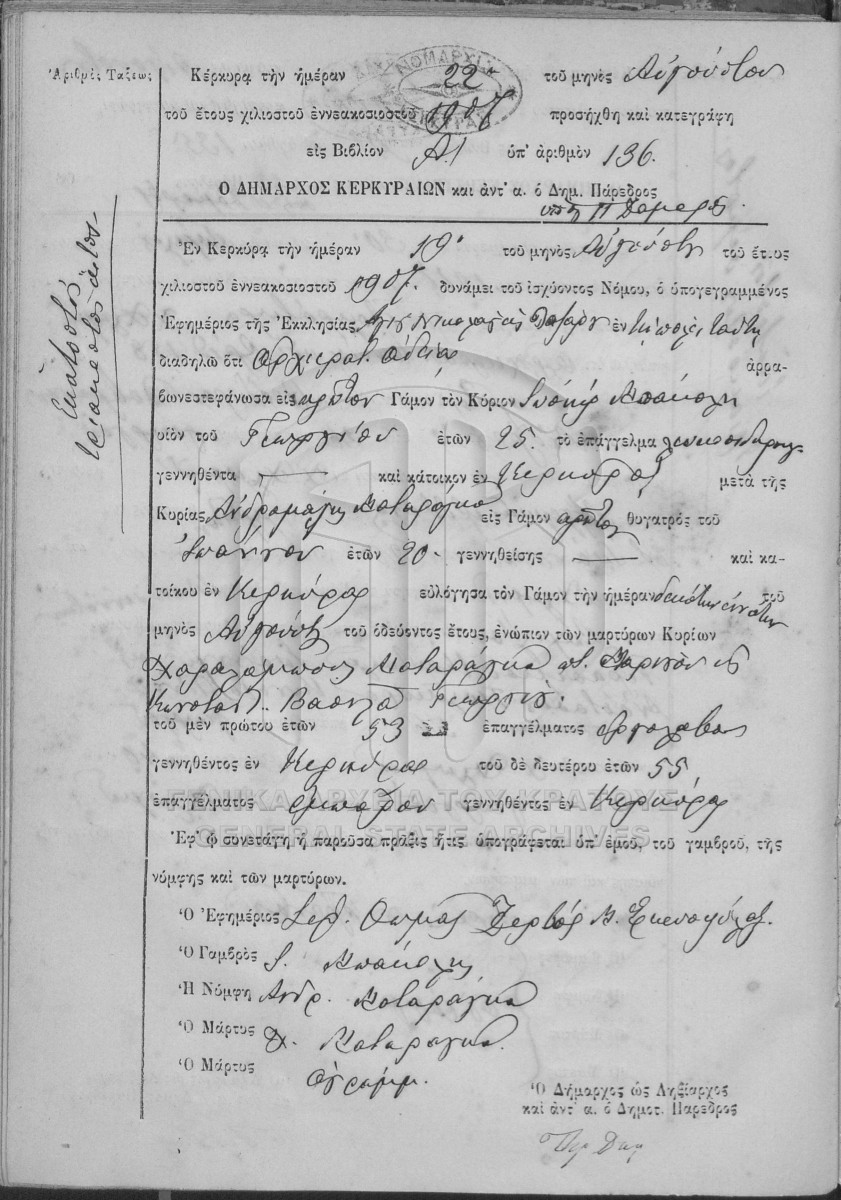 Ἀριθμὸς Τάξεως
Κέρκυρα τὴν ἡμέραν 22 τοῦ μηνὸς Αὐγούστου
τοῦ ἔτους χιλιοστοῦ ἐννεακοσιοστοῦ 1907 προσήχθη καὶ κατεγράφη
εἰς Βιβλίον Α1 ὑπ' ἀριθμὸν 136.
Ο ΔΗΜΑΡΧΟΣ ΚΕΡΚΥΡΑΙΩΝ καὶ ἀντ' α. ὁ Δημ. Πάρεδρος
Ἑκατοστὸς
τριακοστὸς ἕκτος
Ἐν Κερκύρᾳ τὴν ἡμέραν 19 τοῦ μηνὸς Αὐγούστου τοῦ ἔτους
χιλιοστοῦ ἐννεακοσιοστοῦ 1907. δυνάμει τοῦ ἰσχύοντος Νόμου, ὁ ὑπογεγραμμένος
Ἐφημέριος τῆς Ἐκκλησίας ἐν
διαδηλῶ ὅτι ἀρχιερατ. ἀδείᾳ ἀρρα-
βωνεστεφάνωσα εἰς πρῶτον Γάμον τὸν Κύριον Μπάκολη
υἱὸν τοῦ Γεωργίου ἐτῶν 25. τὸ ἐπάγγελμα
γεννηθέντα — καὶ κάτοικον ἐν Κερκύρᾳ μετὰ τῆς
Κυρίας Ἀνδρομάχης Καταράγκα εἰς Γάμον πρῶτον θυγατρὸς τοῦ
Ἰωάννου ἐτῶν 20 γεννηθείσης — καὶ κα-
τοίκου ἐν Κερκύρᾳ εὐλόγησα τὸν Γάμον τὴν ἡμέραν δεκάτην ἐννάτην τοῦ
μηνὸς Αὐγούστου τοῦ ὁδεύοντος ἔτους, ἐνώπιον τῶν μαρτύρων Κυρίων
Χαραλάμπους Καταράγκα
Κωνσταντ. Βασιλᾶ Γεωργίου.
τοῦ μὲν πρώτου ἐτῶν 53 ἐπαγγέλματος ἐργολάβος
γεννηθέντος ἐν Κερκύρᾳ τοῦ δὲ δευτέρου ἐτῶν 55
ἐπαγγέλματος ἐμπόρου γεννηθέντος ἐν Κερκύρᾳ
ΓΕΝΙΚΑ ΑΡΧΕΙΑ ΤΟΥ ΚΡΑΤΟΥΣ
GENERAL STATE ARCHIVES
Ἐφ' ᾧ συνετάγη ἡ παροῦσα πρᾶξις ἥτις ὑπογράφεται ὑπ' ἐμοῦ, τοῦ γαμβροῦ, τῆς
νύμφης καὶ τῶν μαρτύρων.
Ὁ Ἐφημέριος
Ὁ Γαμβρὸς Μπάκολης
Ἡ Νύμφη Ἀνδρ. Καταράγκα
Ὁ Μάρτυς Χ. Καταράγκα.
Ὁ Μάρτυς ἀγράμμ.
Ὁ Δήμαρχος ὡς Ληξίαρχος
καὶ ἀντ' α. ὁ Δημοτ. Πάρεδρος